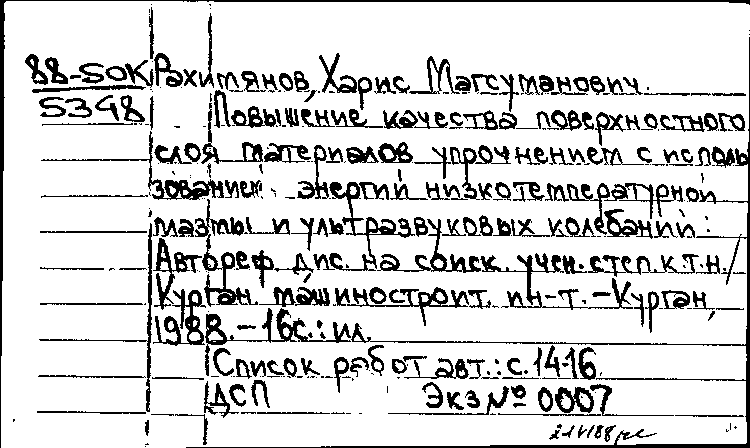 88-50К Рахимянов, Харис Магсуманович.
5348 Повышение качества поверхностного
слоя материалов упрочнением с исполь
зованием энергий низкотемпературной
плазмы и ультразвуковых колебаний:
Автореф. дис. на соиск. учен. степ. к.т.н./
Курган. машиностроит. ин-т. - Курган,
1988. - 16с.: ил.
Список работ авт.: с.14-16
ДСП Экз № 0007